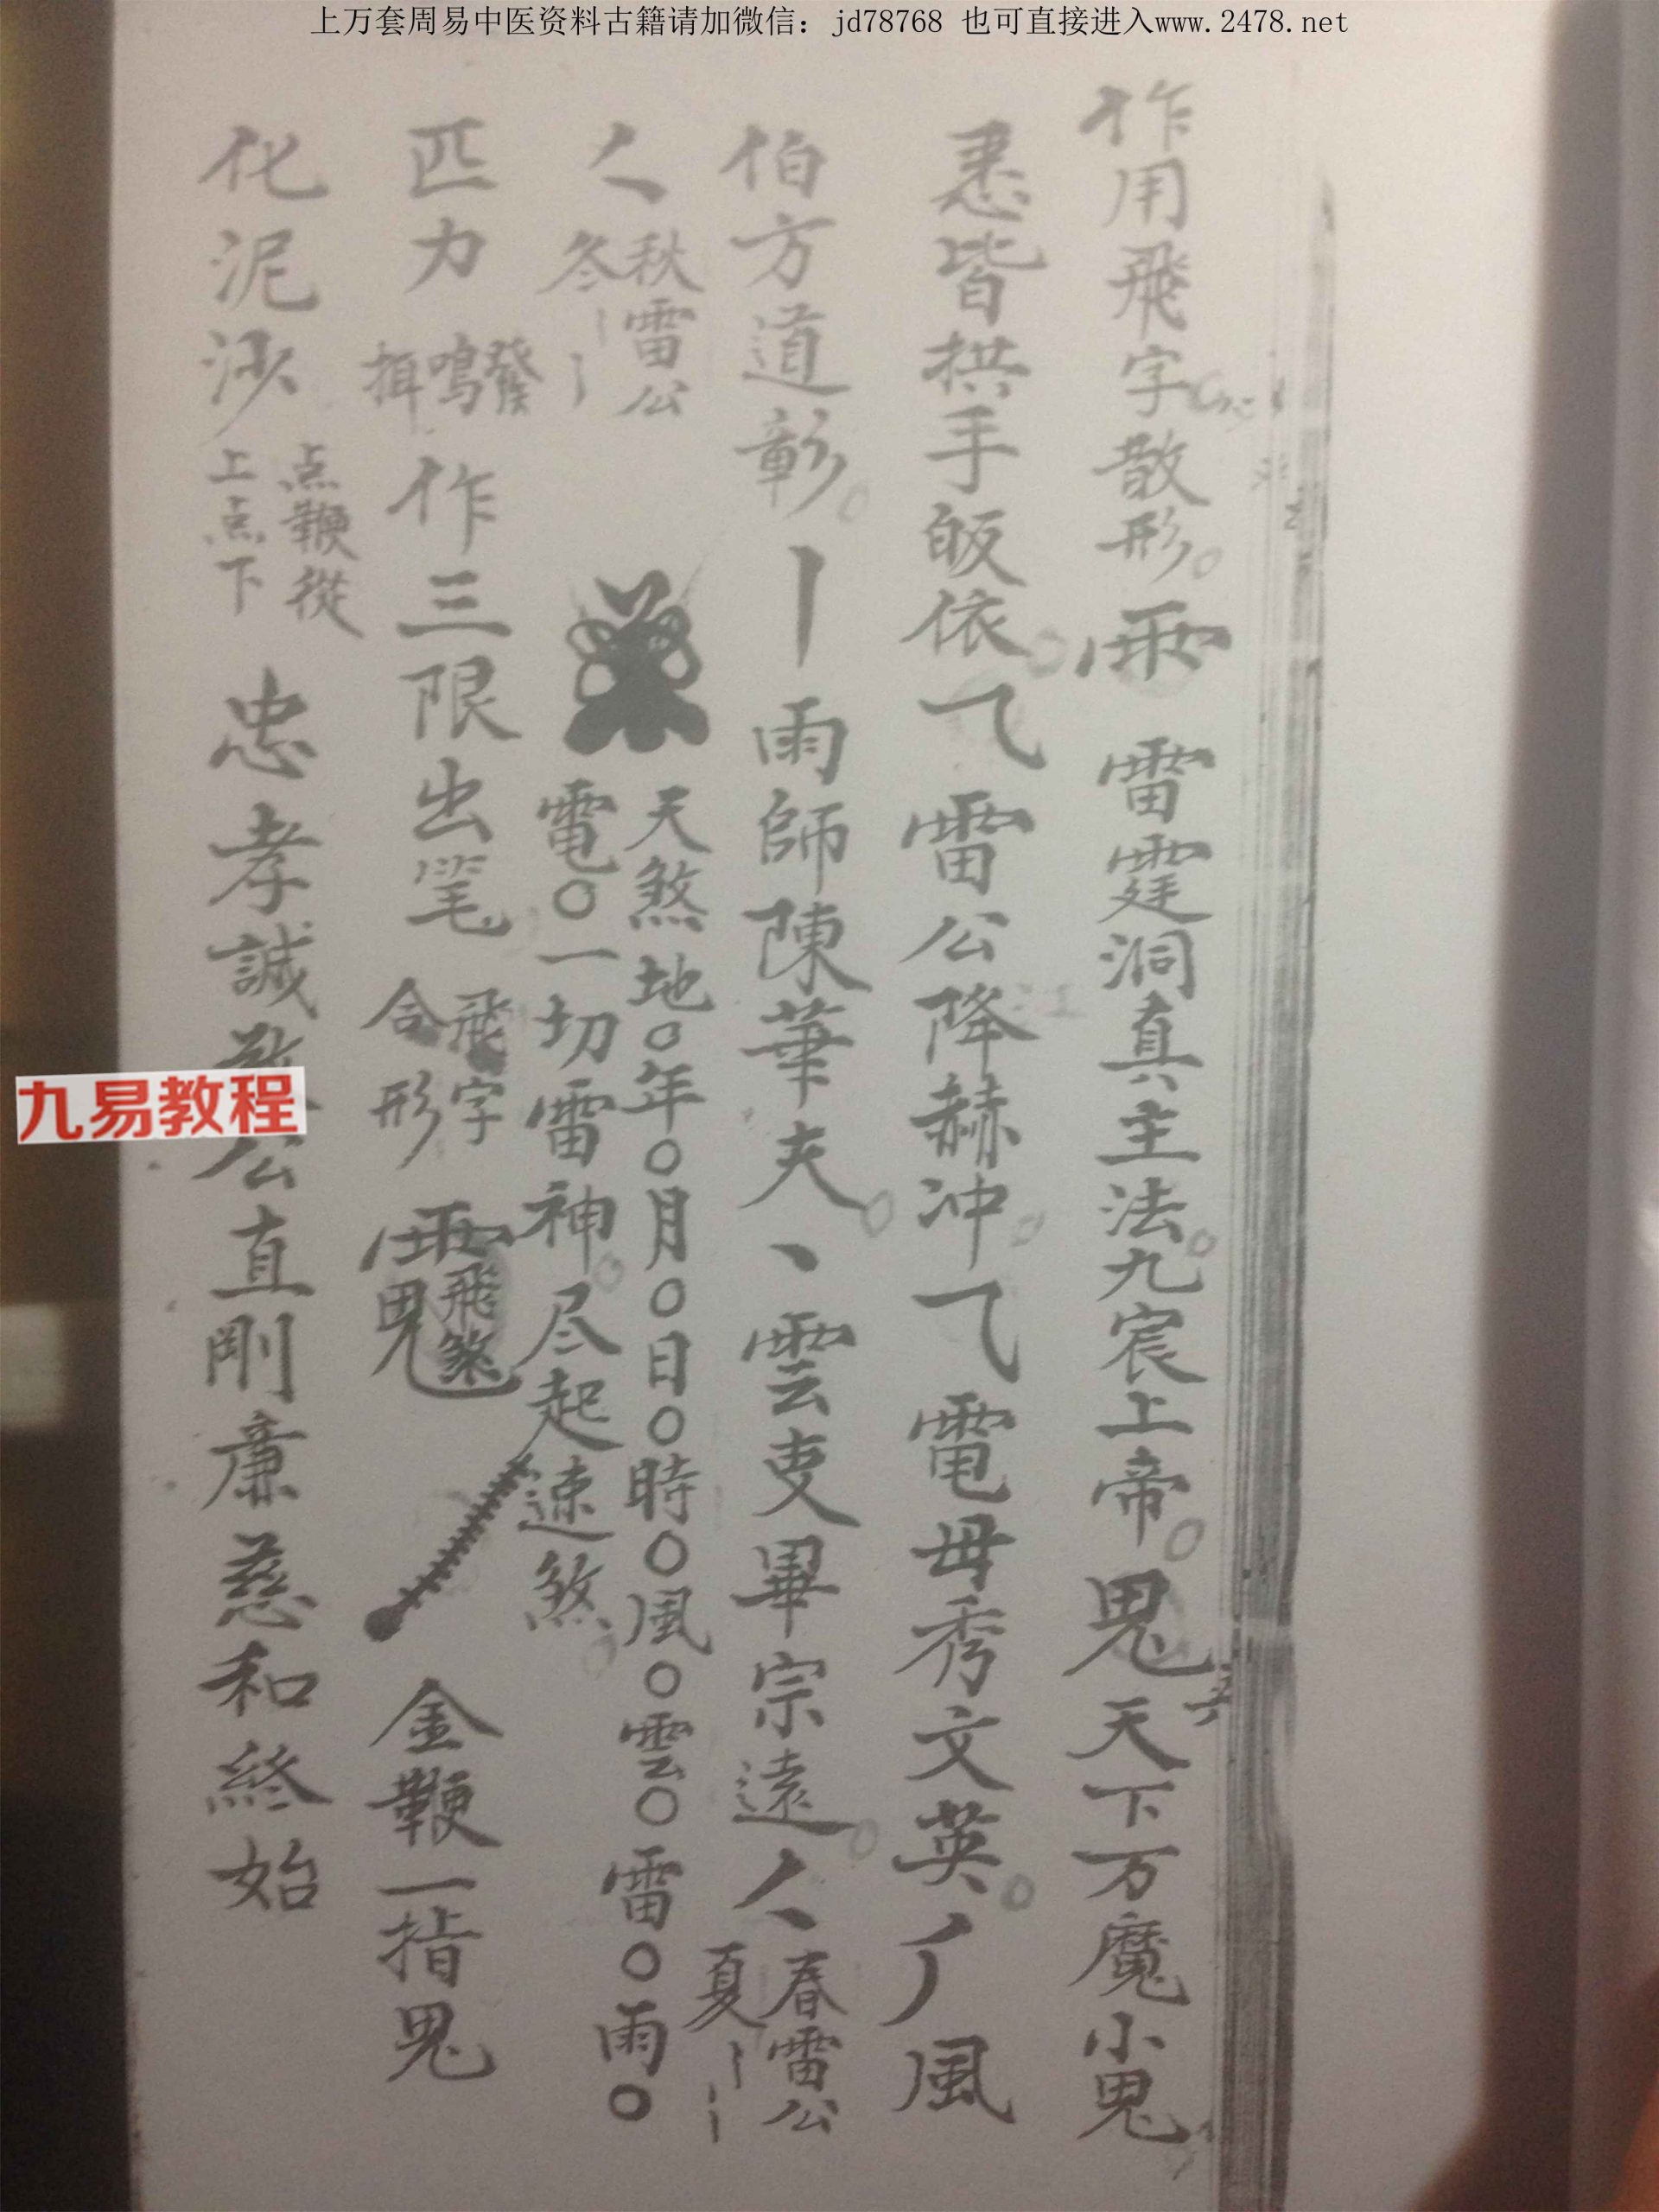 上万套周易中医资料古籍请加微信：jd78768 也可直接进入www.2478.net
作用飛字散形。雨 雷霆洞真主法。九宸上帝。鬼 天下万魔小鬼
悉皆拱手皈依。⺄雷公降赫冲。⺄電母秀文英。丿風
伯方道彰。丨雨師陳華夫。丶雲吏畢宗遠。𠆢 春雷公 夏丨丨
𠆢 秋雷公 冬丨丨 天煞地○年○月○日○時○風○雲○雷○雨○
電○一切雷神。尽起速煞。
匹力 發鳴 作三限出笔 飛字合形 雨鬼飛煞 金鞭一指鬼
化泥沙 点鞭從上点下 忠孝誠 公直剛廉慈和終始
九易教程